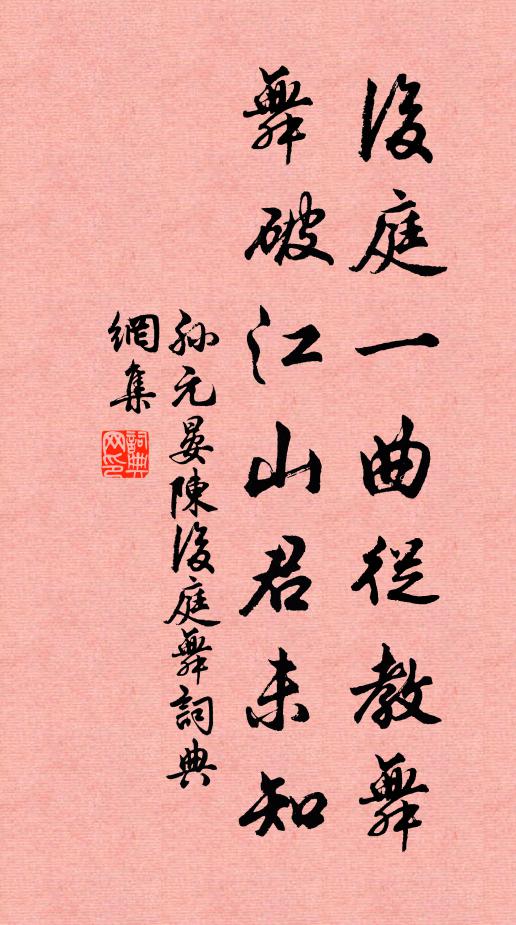 後庭一曲從教舞
舞破江山君未知
孫元晏陳後庭舞詞典
網集
詞典網印